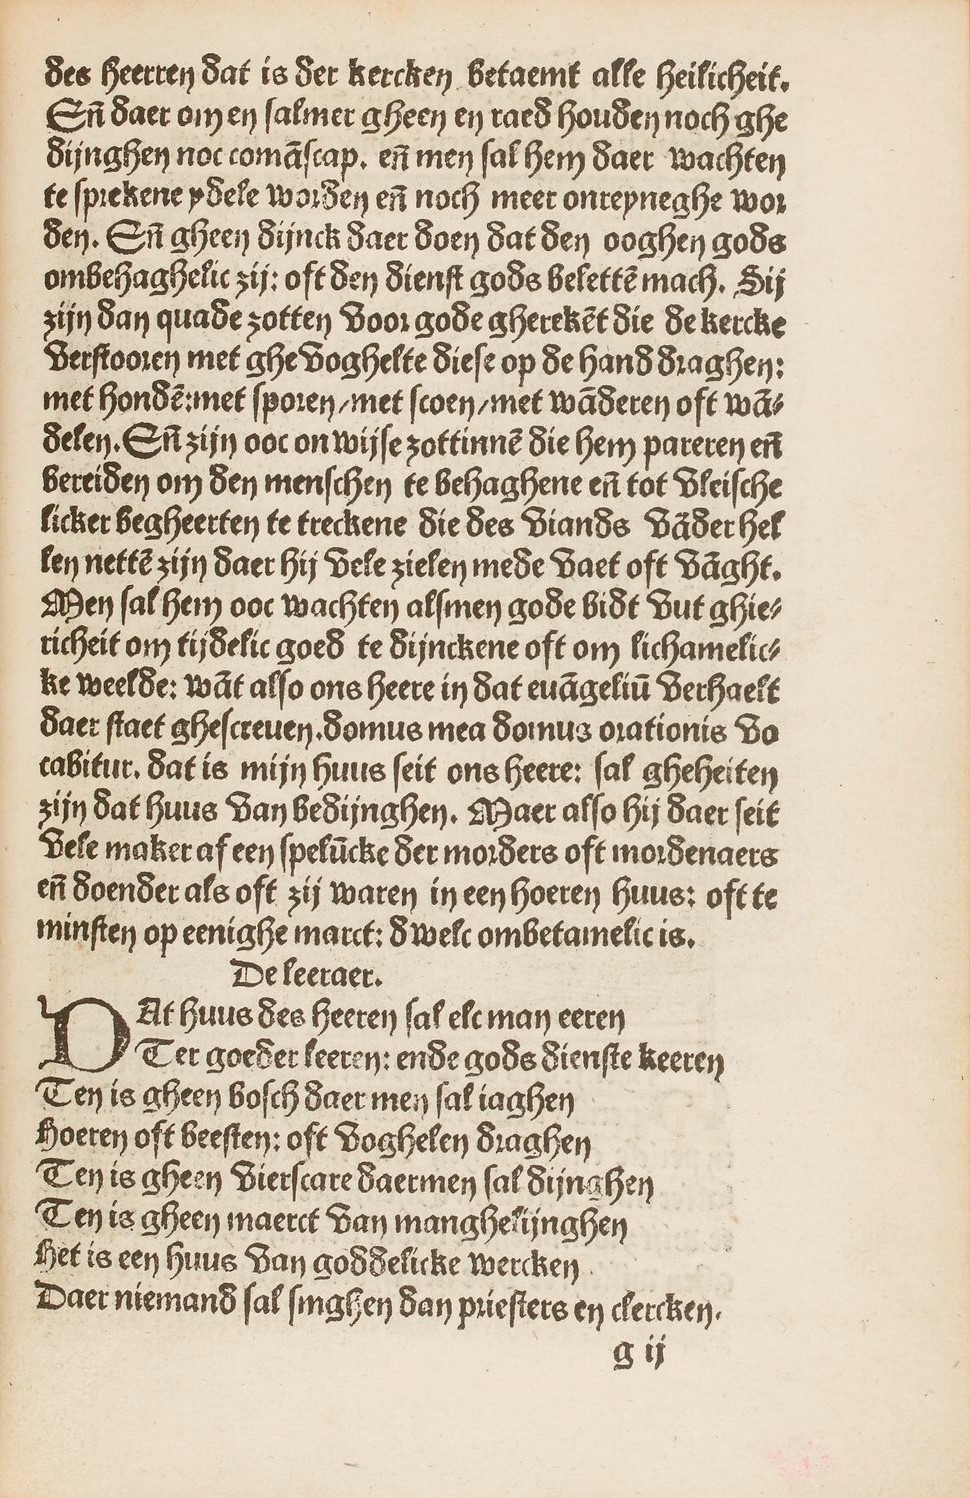 des heerren dat is der kercken betaemt alle heilicheit.
Eñ daer om en salmer gheen en raed houden noch ghe
dijnghen noc comãscap. eñ men sal hem daer wachten
te sprekene ydele worden eñ noch meer onreyneghe wor
den. Eñ gheen dijnck daer doen dat den ooghen gods
ombehaghelic zij: oft den dienst gods belettẽ mach. Sij
zijn dan quade zotten voor gode gherekẽt die de kercke
verstooren met ghevoghelte diese op de hand draghen:
met hondẽ:met sporen/met scoen/met wãderen oft wã⸗
delen.Eñ zijn ooc onwijse zottinnẽ die hem pareren eñ
bereiden om den menschen te behaghene eñ tot vleische
licker begheerten te treckene die des viands vãder hel
len nettẽ zijn daer hij vele zielen mede vaet oft vãght.
Men sal hem ooc wachten alsmen gode bidt vut ghie⸗
richeit om tijdelic goed te dijnckene oft om lichamelic⸗
ke weelde: wãt also ons heere in dat euãgeliũ verhaelt
daer staet ghescreuen.domus mea domus orationis vo
cabitur. dat is mijn huus seit ons heere: sal gheheiten
zijn dat huus van bedijnghen. Maer also hij daer seit
vele maker af een spelũcke der morders oft mordenaers
eñ doender als oft zij waren in een hoeren huus: oft te
minsten op eenighe marct: dwelc ombetamelic is.
De leeraer.
DAt huus des heeren sal elc man eeren
Ter goeder leeren: ende gods dienste keeren
Ten is gheen bosch daer men sal iaghen
Hoeren oft beesten: oft voghelen draghen
Ten is gheen vierscare daermen sal dijnghen
Ten is gheen maerct van manghelijnghen
Het is een huus van goddelicke wercken
Daer niemand sal singhen dan priesters en clercken.
g ij